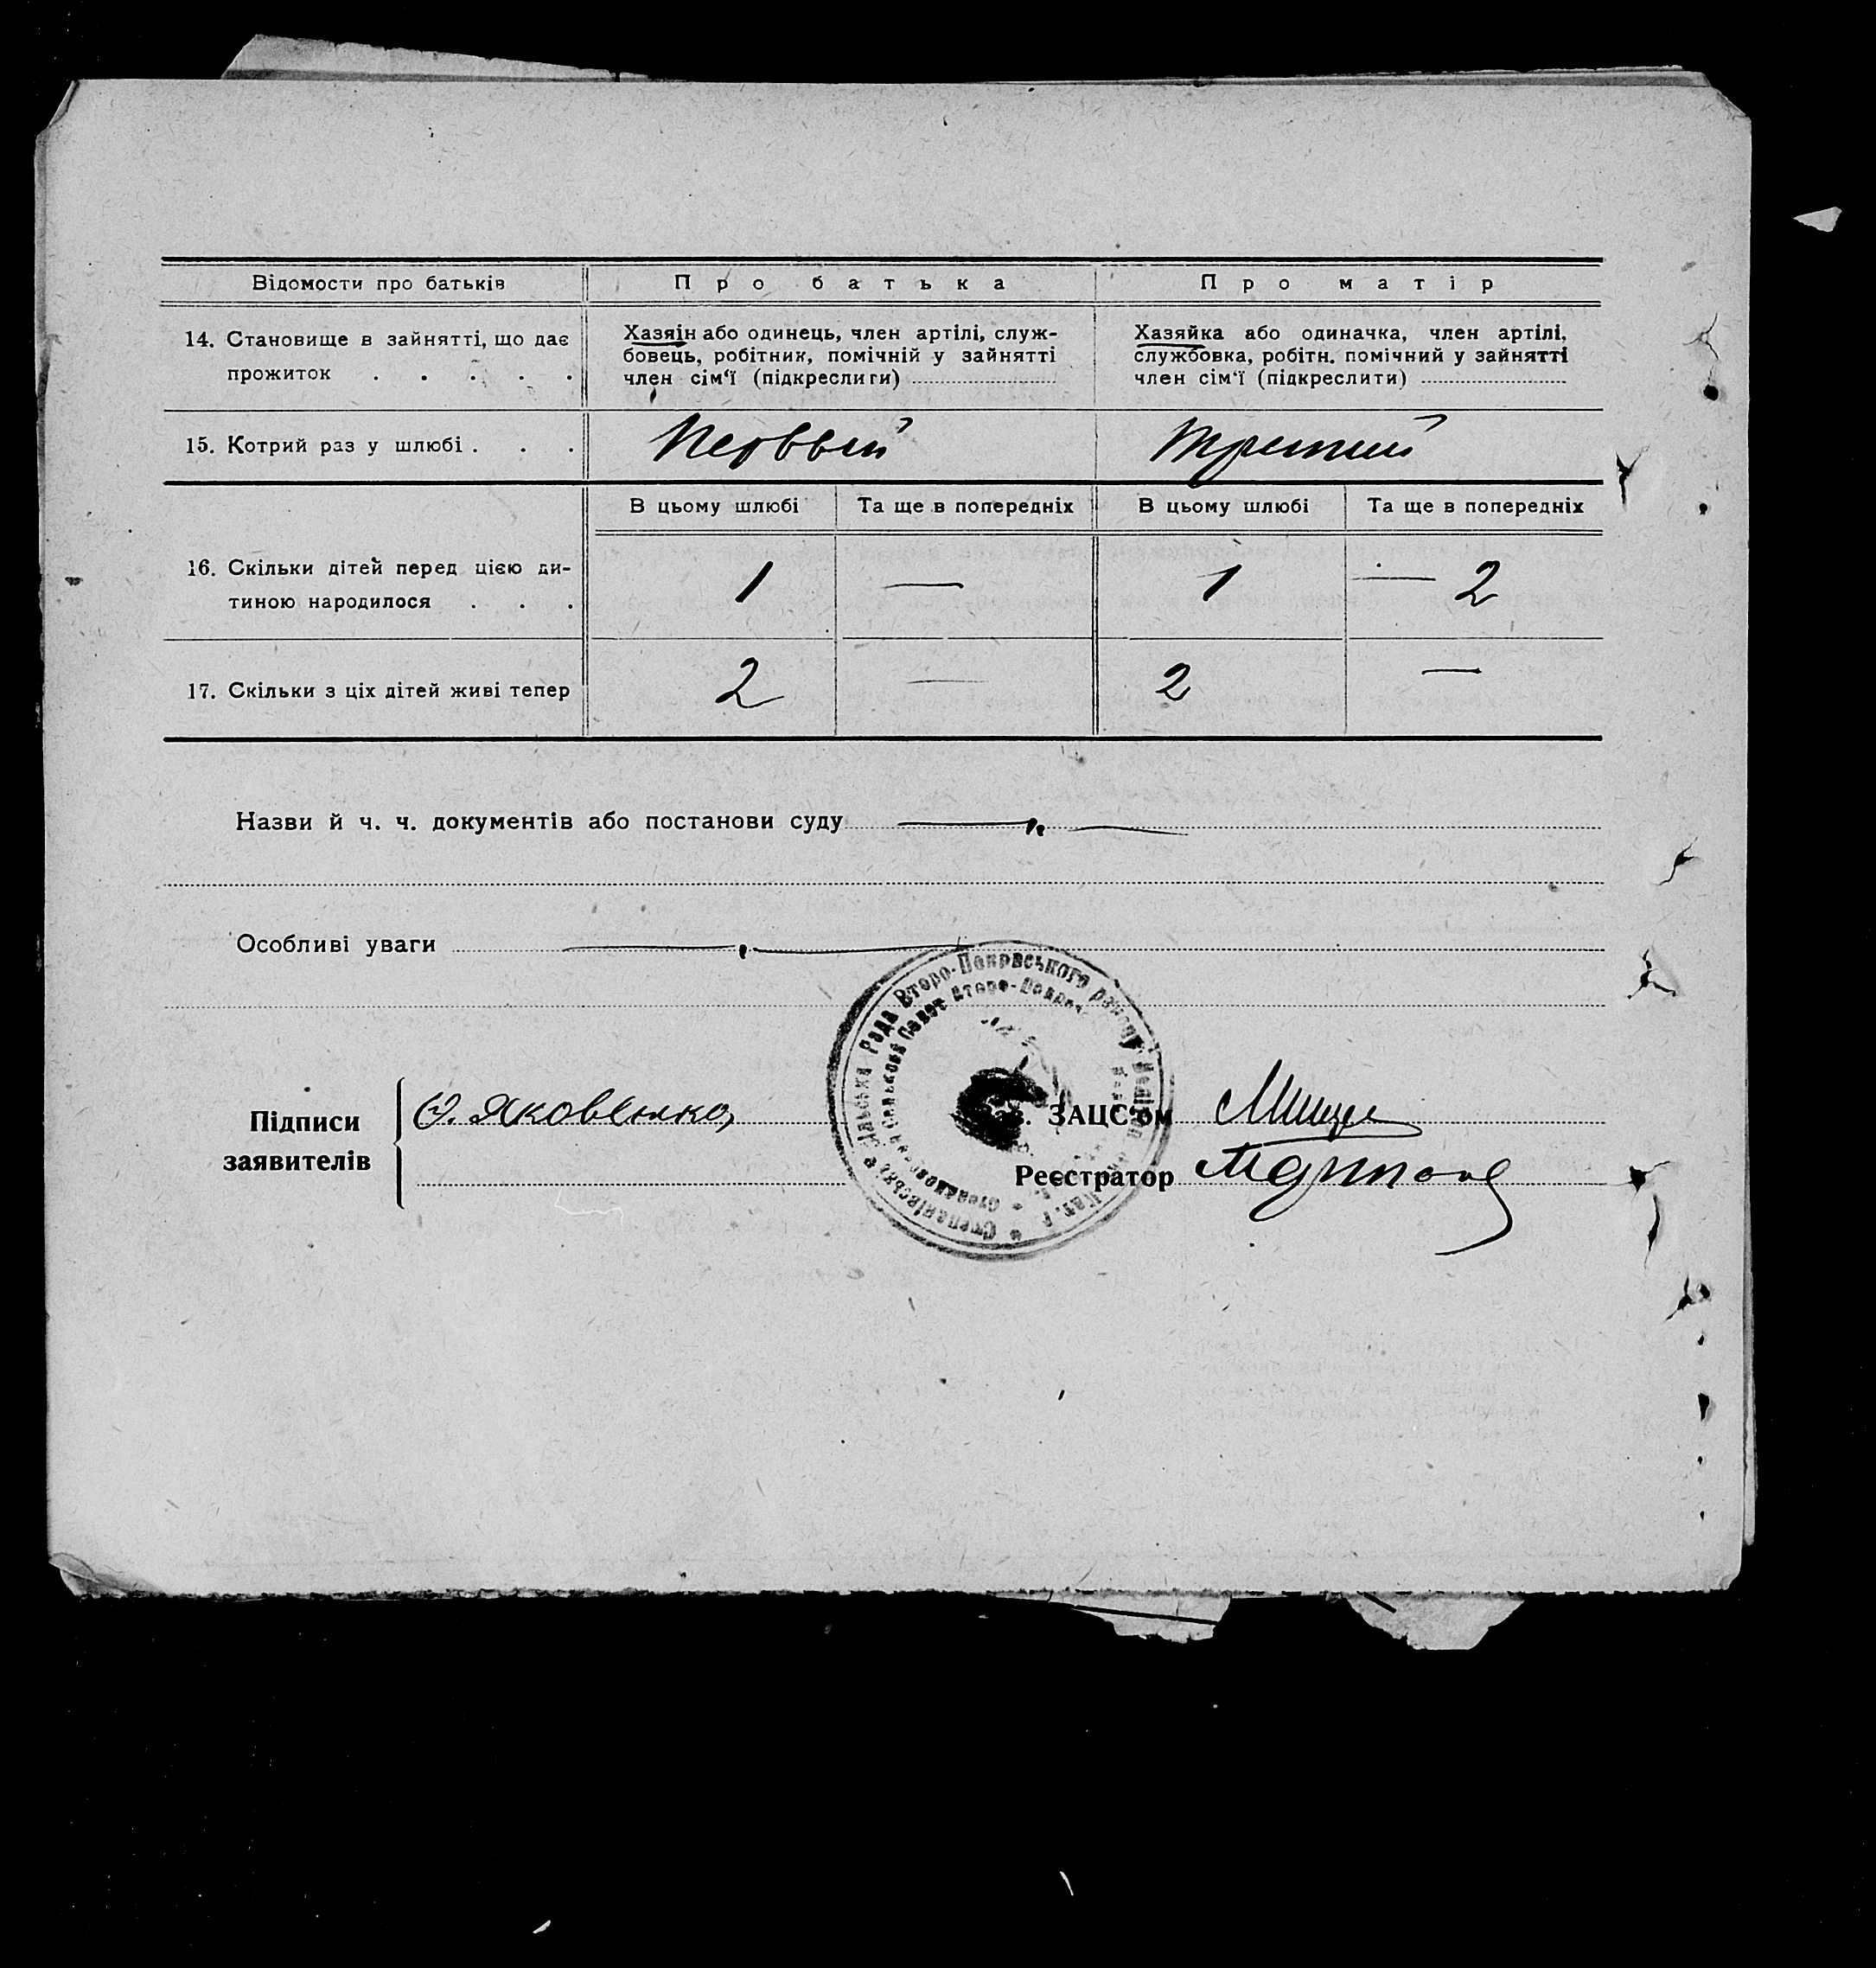 Відомости про батьків
Про батька
Про матір
14. Становище в зайнятті, що дає
прожиток . . . . .
Хазяїн або одинець, член артілі, служ-
бовець, робітник, помічній у зайнятті
член сім‘ї (підкреслити)
Хазяйка або одиначка, член артілі,
службовка, робітн. помічний у зайнятті
член сім‘ї (підкреслити)
15. Котрий раз у шлюбі . . .
Первый
Третий
В цьому шлюбі
Та ще в попередніх
В цьому шлюбі
Та ще в попередніх
16. Скільки дітей перед цією ди-
тиною народилося . . .
1
—
1
— 2
17. Скільки з ціх дітей живі тепер
2
—
2
—
Назви й ч. ч. документів або постанови суду
Особливі уваги
Рада Второ-Покрвського району
Второ-
Підписи
заявителів
Яковенко
ЗАЦС'ом
Реєстратор